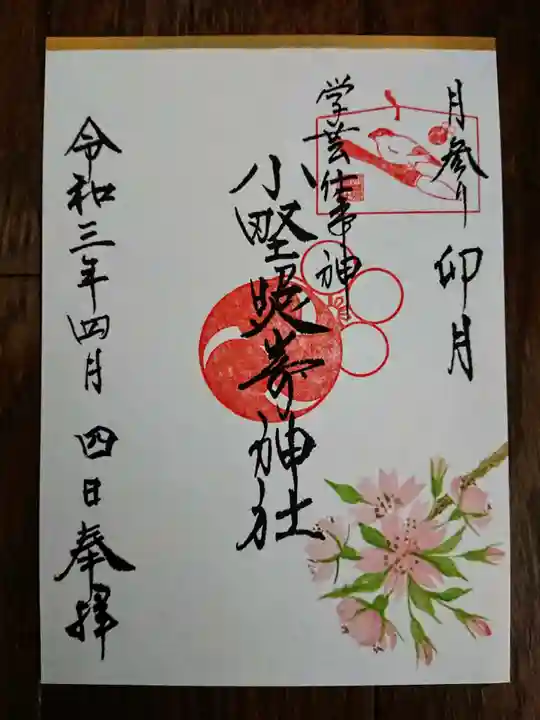 月参り 卯月
学芸仕事神
小野照崎神社
令和三年四月四日奉拝